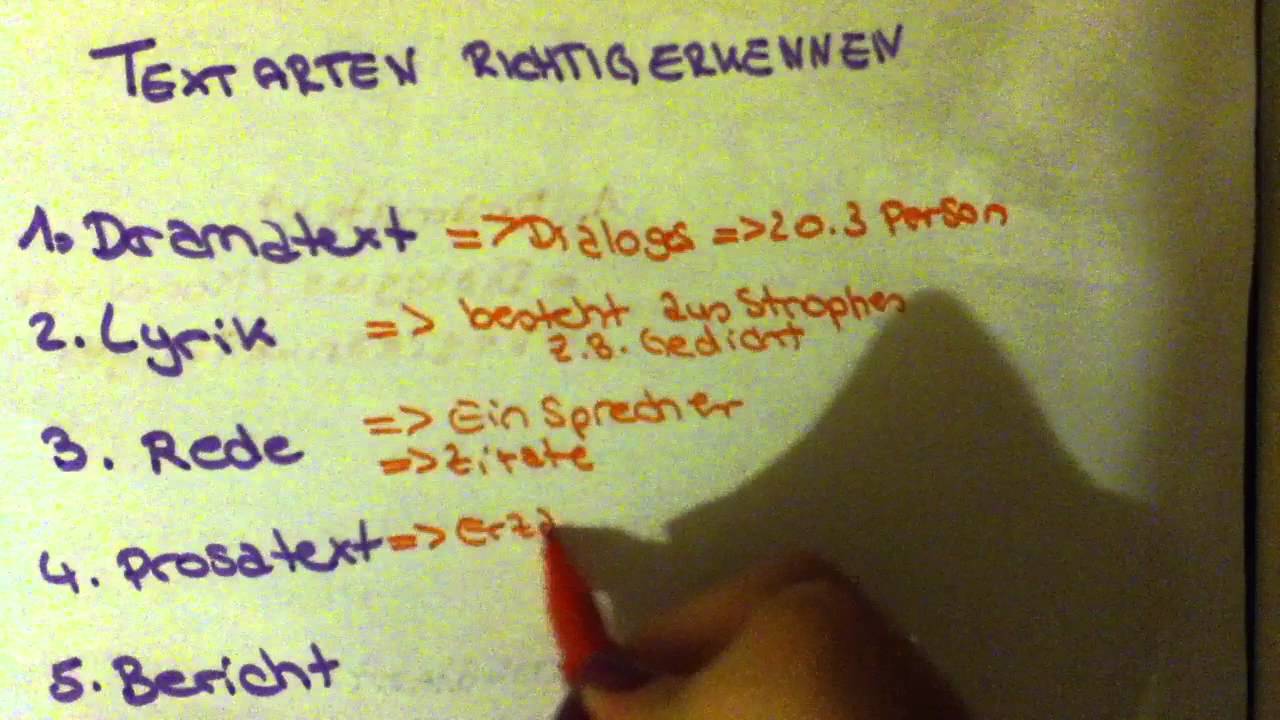 TEXTARTEN RICHTIG ERKENNEN
1. Dramatext => Dialoge => 2 o. 3 Person
2. Lyrik => besteht aus Strophen
z.B. Gedicht
3. Rede => Ein Sprecher
=> Zitate
4. Prosatext => Erzä
5. Bericht